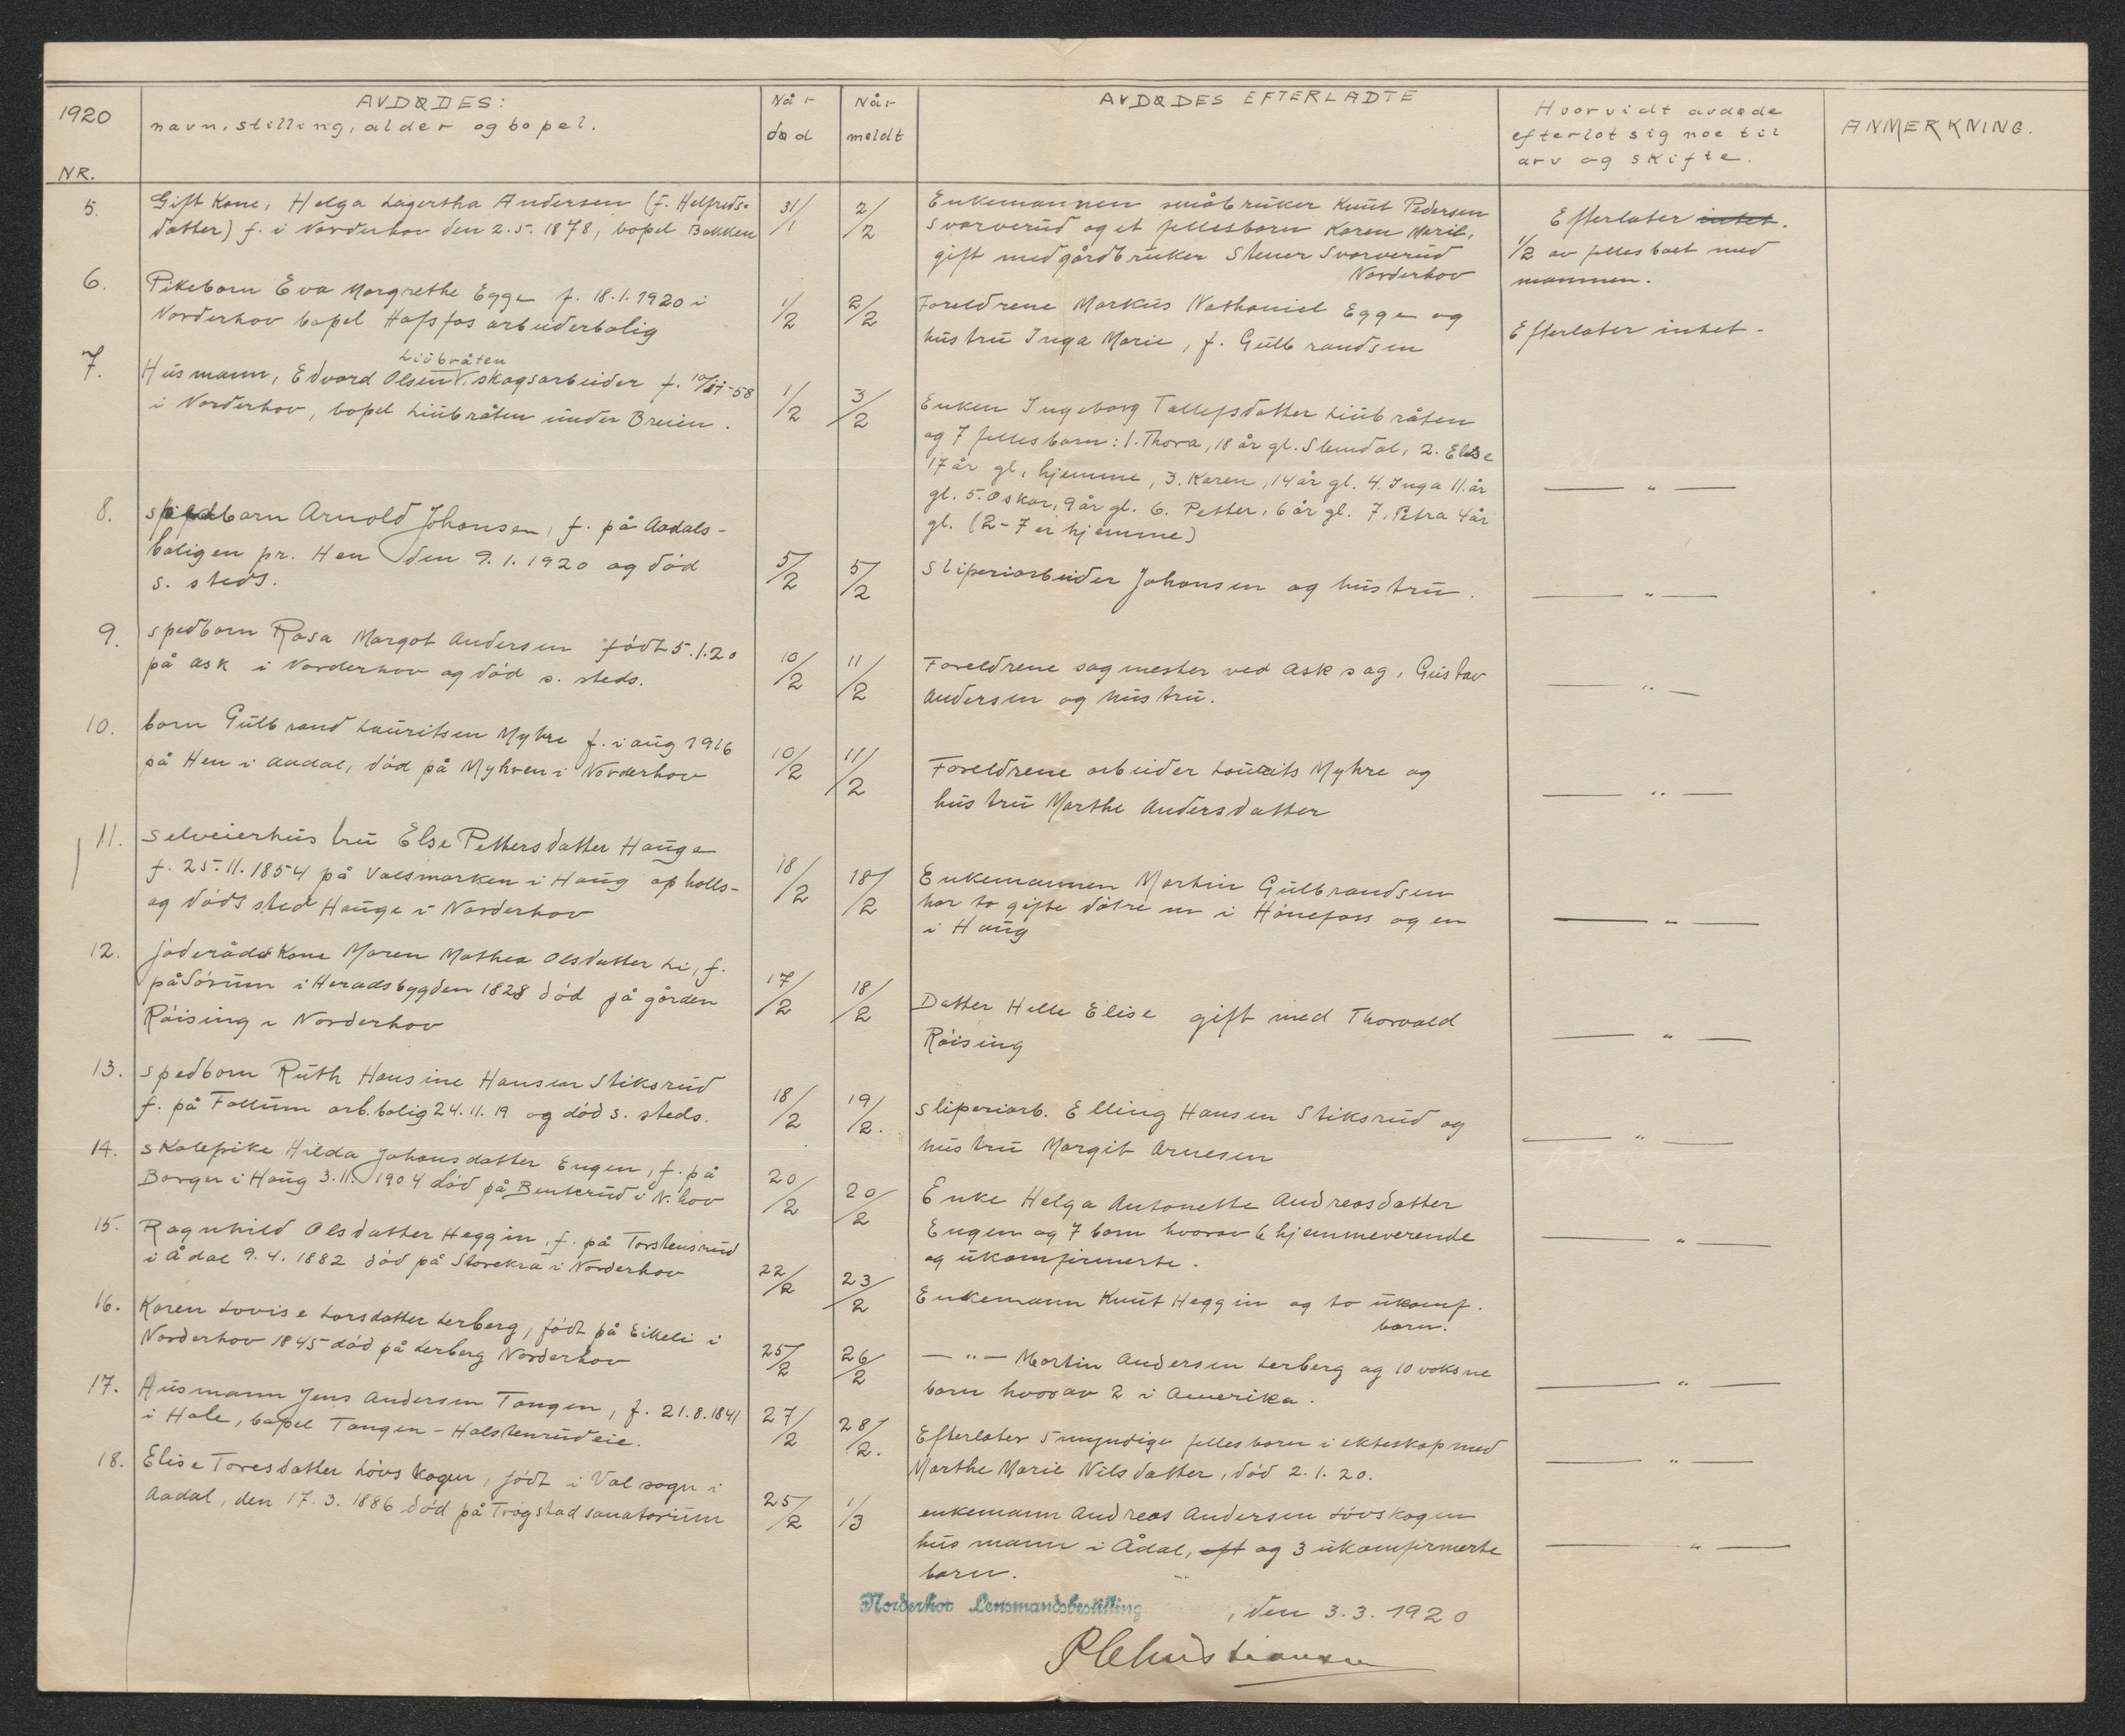 1920
NR.
AVDØDES:
navn, stilling, alder og bopel.
Når død
Når meldt
AVDØDES EFTERLADTE
Hvorvidt avdøde
efterlot sig noe til
arv og skifte.
ANMERKNING.
5.
Gift Kone, Helga Lagertha Andersen (f. Helfreds-
datter) f. i Norderhov den 2.5.1878, bopel Bakken
31/1
2/2
Enkemannen småbruker Knut Pedersen
Svarverud og et fellesbarn Karen Marie,
gift med gårdbruker Stener Svarverud
Norderhov
Efterlater intet.
1/2 av fellesboet med
mannen.
6.
Pikebarn Eva Margrethe Egge f. 18.1.1920 i
Norderhov bopel Hofsfos arbeiderbolig
1/2
2/2
Foreldrene Markus Nathaniel Egge og
hustru Inga Marie, f. Gulbrandsen
Efterlater intet.
7.
Liubråten
Husmann, Edvard Olsen V. skogsarbeider f. 10/11-58
i Norderhov, bopel Liubråten under Breien.
1/2
3/2
Enken Ingeborg Tollefsdatter Liubråten
og 7 fellesbarn: 1. Thora, 18 år gl. Stendal, 2. Else
17 år gl, hjemme, 3. Karen, 14 år gl. 4. Inga 11. år
gl. 5. Oskar, 9 år gl. 6. Petter, 6 år gl. 7. Petra 4 år
gl. (2-7 er hjemme)
— " —
8.
spedbarn Arnold Johansen, f. på Aadals-
boligen pr. Hen den 9.1.1920 og død
s. steds.
5/2
5/2
Sliperiarbeider Johansen og hustru.
— " —
9.
spedbarn Rosa Margot Andersen født 5.1.20
på Ask i Norderhov og død s. steds.
10/2
11/2
Foreldrene sagmester ved Ask sag, Gustav
Andersen og hustru.
— " —
10.
barn Gulbrand Lauritsen Myhre f. i aug 1916
på Hen i Aadal, død på Myhren i Norderhov
10/2
11/2
Foreldrene arbeider Laurits Myhre og
hustru Marthe Andersdatter
— " —
11.
Selveierhustru Else Pettersdatter Hauge
f. 25.11.1854 på Valsmarken i Haug opholls-
og dødssted Hauge i Norderhov
18/2
18/2
Enkemannen Martin Gulbrandsen
har to gifte døtre en i Hønefoss og en
i Haug
— " —
12.
føderådskone Maren Mathea Olsdatter Li, f.
på Sørum i Heradsbygden 1828 død på gården
Røising i Norderhov
17/2
18/2
Datter Helle Elise gift med Thorvald
Røising
— " —
13.
spedbarn Ruth Hansine Hansen Stiksrud
f. på Follum arb.bolig 24.11.19 og død s. steds.
18/2
19/2.
sliperiarb. Elling Hansen Stiksrud og
hustru Margit Arnesen
— " —
14.
Skolepike Hilda Johansdatter Engen, f. på
Borger i Haug 3.11.1904 død på Benterud i N.hov
20/2
20/2
Enke Helga Antonette Andreasdatter
Engen og 7 barn hvorav 6 hjemmeverende
og ukomfirmerte.
— " —
15.
Ragnhild Olsdatter Heggin, f. på Torstensrud
i Ådal 9.4.1882 død på Storekra i Norderhov
22/2
23/2
Enkemann Knut Heggin og to ukomf.
barn.
16.
Karen Lovise Larsdatter Lerberg, født på Eikeli i
Norderhov 1845 død på Lerberg Norderhov
25/2
26/2
— " — Martin Andersen Lerberg og 10 voksne
barn hvorav 2 i Amerika.
— " —
17.
Husmann Jens Andersen Tangen, f. 21.8.1841
i Hole, bopel Tangen - Halstenrudeie.
27/2
28/2.
Efterlater 5 myndige fellesbarn i ekteskap med
Marthe Marie Nilsdatter, død 2.1.20.
— " —
18.
Elise Toresdatter Løvskogen, født i Val sogn i
Aadal, den 17.3.1886 død på Trøgstad sanatorium
25/2
1/3
enkemann Andreas Andersen Løvskogen
husmann i Ådal, eft og 3 ukomfirmerte
barn.
— " —
Norderhov Lensmandsbestilling, den 3.3.1920
P Christiansen